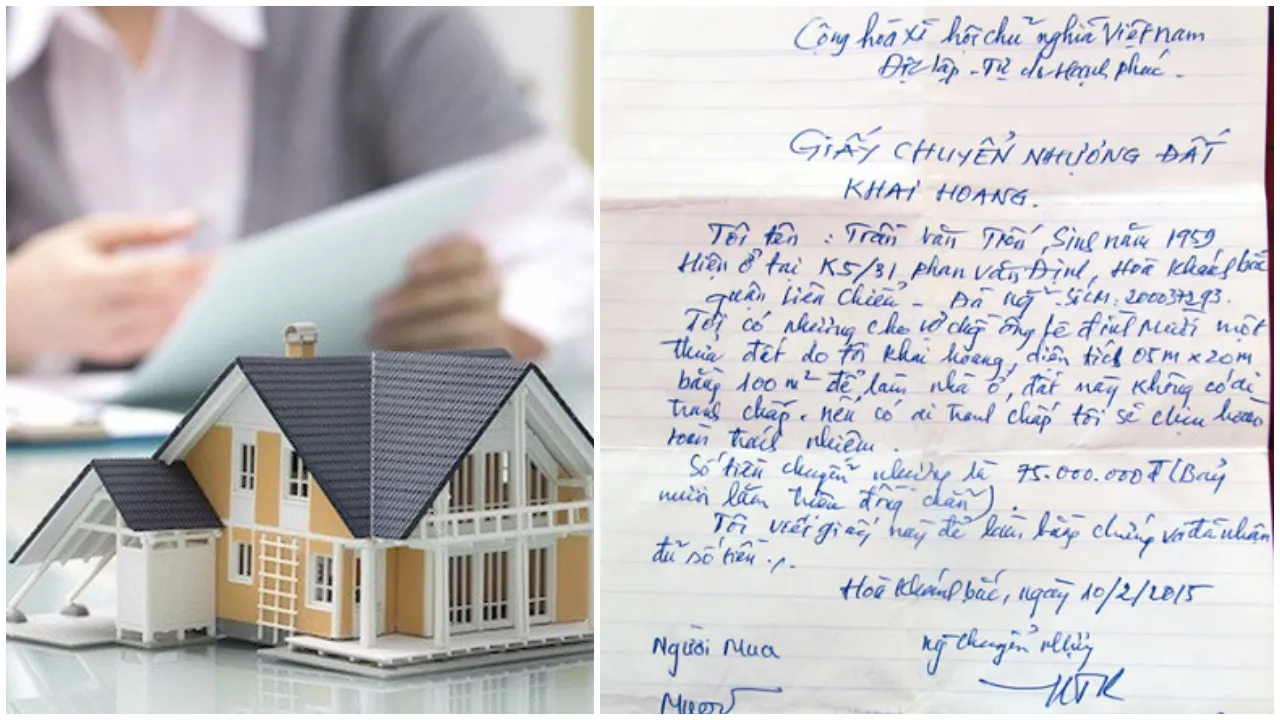 Cộng hoà xã hội chủ nghĩa Việt Nam
Độc lập - Tự do Hạnh phúc.
GIẤY CHUYỂN NHƯỢNG ĐẤT
KHAI HOANG.
Tôi tên : Trần Văn Tiến, Sinh năm 1959
Hiện ở tại K5/31 Phan Văn Định, Hoà Khánh bắc
quận Liên Chiểu - Đà Nẵng SốCM: 200037293.
Tôi có nhường cho vợ chồng ông Lê Đình Mười một
thửa đất do tôi khai hoang, diện tích 05m x 20m
bằng 100m² để làm nhà ở, đất này không có ai
tranh chấp. nếu có ai tranh chấp tôi sẽ chịu hoàn
toàn trách nhiệm.
Số tiền chuyển nhường là 75.000.000đ (Bảy
mươi lăm triệu đồng chẵn).
Tôi viết giấy này để làm bằng chứng và đã nhận
đủ số tiền./.
Hoà Khánh bắc, ngày 10/2/2015
Người Mua
ng chuyển nhượng
Mười